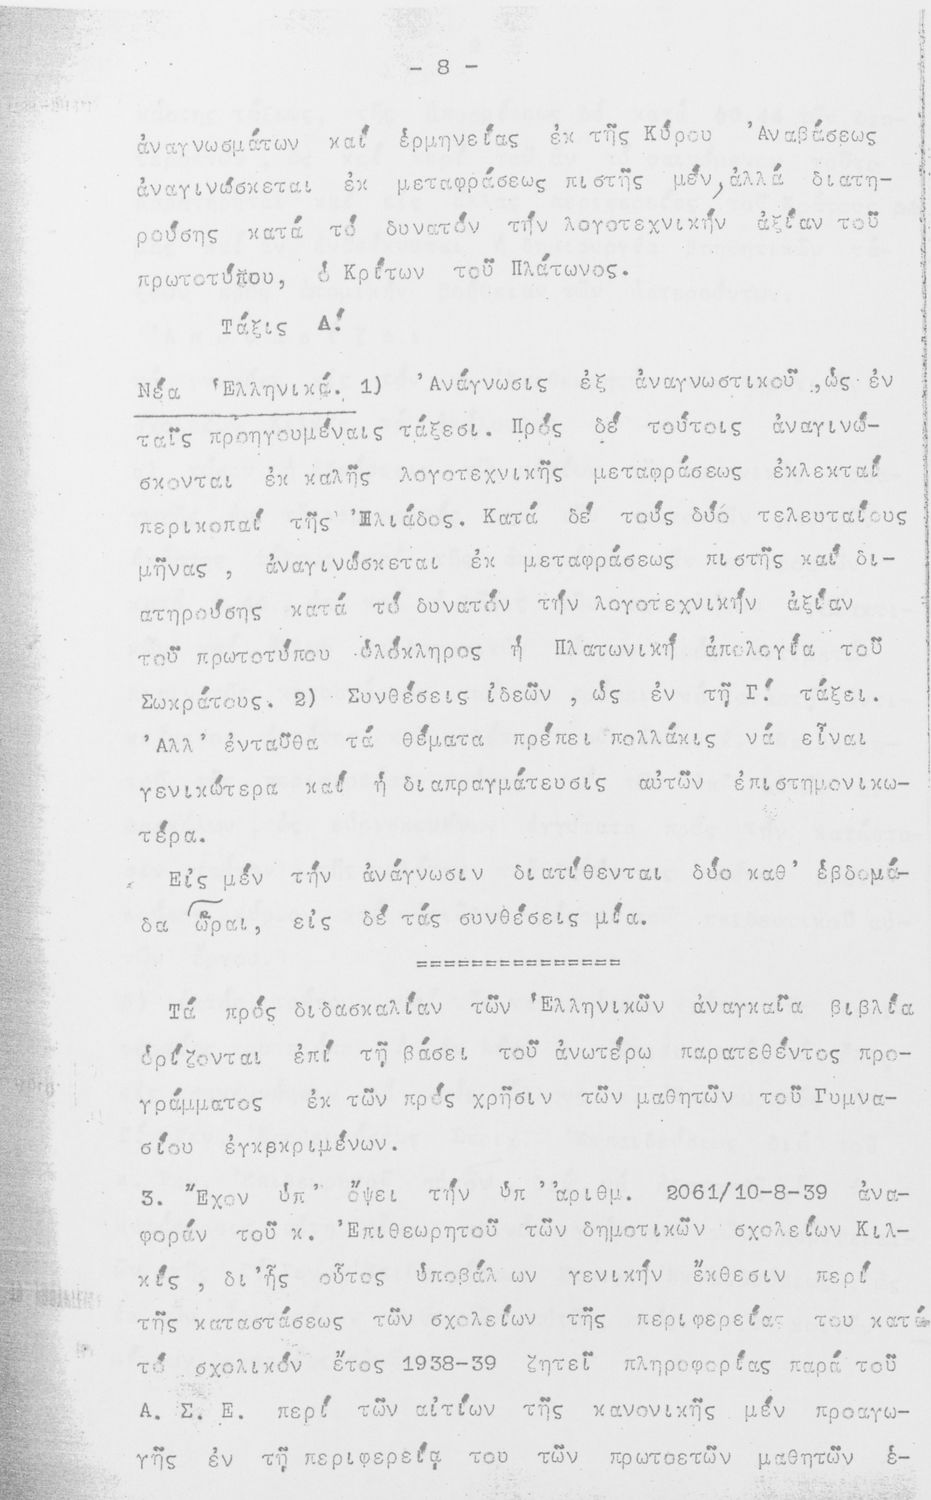 - 8 -
ἀναγνωσμάτων καί ἑρμηνείας ἐκ τῆς Κύρου Ἀναβάσεως
ἀναγινώσκεται ἐκ μεταφράσεως πιστῆς μέν, ἀλλά διατη-
ρούσης κατά τό δυνατόν τήν λογοτεχνικήν ἀξίαν τοῦ
πρωτοτύπου, ὁ Κρίτων τοῦ Πλάτωνος.
Τάξις Δ!
Νέα Ἑλληνικά. 1) Ἀνάγνωσις ἐξ ἀναγνωστικοῦ, ὡς ἐν
ταῖς προηγουμέναις τάξεσι. Πρός δέ τούτοις ἀναγινώ-
σκονται ἐκ καλῆς λογοτεχνικῆς μεταφράσεως ἐκλεκταί
περικοπαί τῆς Ἰλιάδος. Κατά δέ τούς δύό τελευταίους
μῆνας, ἀναγινώσκεται ἐκ μεταφράσεως πιστῆς καί δι-
ατηρούσης κατά τό δυνατόν τήν λογοτεχνικήν ἀξίαν
τοῦ πρωτοτύπου ὁλόκληρος ἡ Πλατωνική ἀπολογία τοῦ
Σωκράτους. 2) Συνθέσεις ἰδεῶν, ὡς ἐν τῇ Γ! τάξει.
Ἀλλ' ἐνταῦθα τά θέματα πρέπει πολλάκις νά εἶναι
γενικώτερα καί ἡ διαπραγμάτευσις αὐτῶν ἐπιστημονικω-
τέρα.
Εἰς μέν τήν ἀνάγνωσιν διατίθενται δύο καθ' ἑβδομά-
δα ὧραι, εἰς δέ τάς συνθέσεις μία.
===============
Τά πρός διδασκαλίαν τῶν Ἑλληνικῶν ἀναγκαῖα βιβλία
ὁρίζονται ἐπί τῇ βάσει τοῦ ἀνωτέρω παρατεθέντος προ-
γράμματος ἐκ τῶν πρός χρῆσιν τῶν μαθητῶν τοῦ Γυμνα-
σίου ἐγκεκριμένων.
3. Ἔχον ὑπ' ὄψει τήν ὑπ' ἀριθμ. 2061/10-8-39 ἀνα-
φοράν τοῦ κ. Ἐπιθεωρητοῦ τῶν δημοτικῶν σχολείων Κιλ-
κίς, δι' ἧς οὗτος ὑποβάλων γενικήν ἔκθεσιν περί
τῆς καταστάσεως τῶν σχολείων τῆς περιφερείας του κατά
τό σχολικόν ἔτος 1938-39 ζητεῖ πληροφορίας παρά τοῦ
Α. Σ. Ε. περί τῶν αἰτίων τῆς κανονικῆς μέν προαγω-
γῆς ἐν τῇ περιφερείᾳ του τῶν πρωτοετῶν μαθητῶν ἑ-